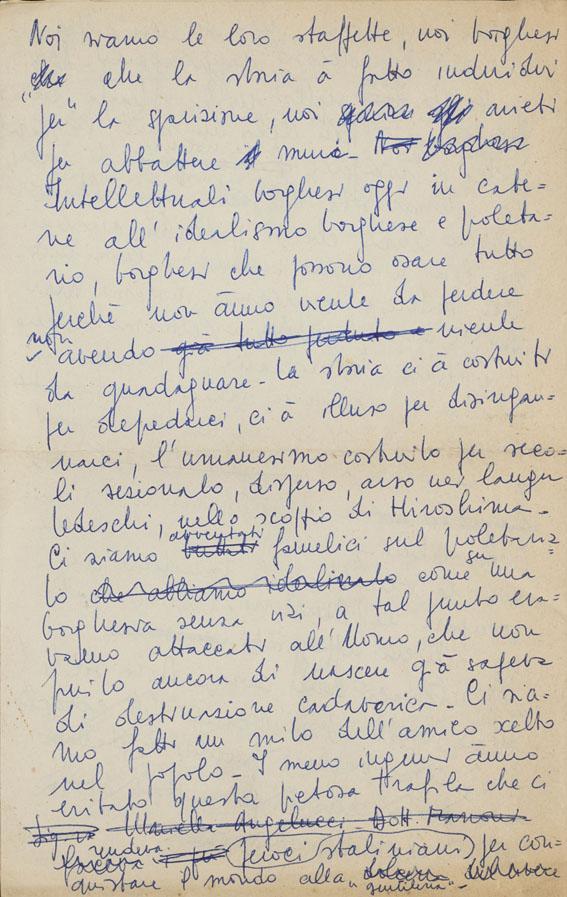 Noi siamo le loro staffette, noi borghesi
che che la storia à fatto individui
"per" la sparizione, noi arieti
per abbattere muri. Noi borghesi
Intellettuali borghesi oggi in cate=
ne all'idealismo borghese e poleta=
rio, borghesi che possono osare tutto
perchè non ànno niente da perdere
non avendo già tutto perduto e niente
da guadagnare. La storia ci à costruiti
per depedarci, ci à illuso per disingan=
narci, l'umanesimo costruito per seco=
li sezionato, disperso, arso nei lauger
tedeschi, nello scoppio di Hiroshima.
avventati
Ci siamo buttati famelici sul poletaria=
su
to che abbiamo idealizzato come una
borghesia senza vizi, a tal punto era=
vamo attaccati all'Uomo, che non
puilo ancora di nascere già sapeva
di destinazione cadaverica. Ci sia=
mo fatti un mito dell'amico scelto
nel popolo. I meno ingenui ànno
evitato questa penosa trafila che ci
Angelucci Dott.
rendeva
faceva feroci (staliniani) per con=
quistare il mondo alla